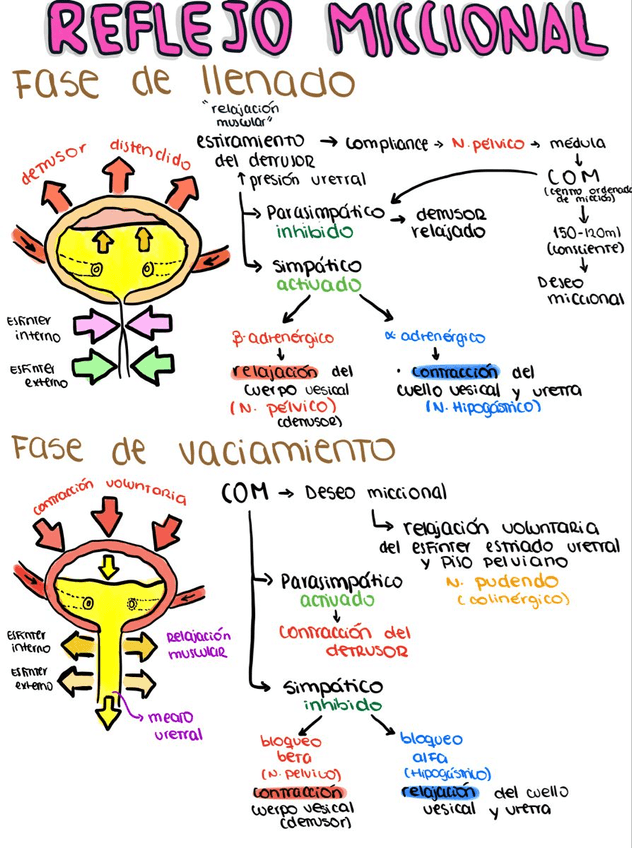 REFLEJO MICCIONAL
Fase de llenado
"relajación
muscular"
detrusor distendido
estiramiento → compliance → N. pélvico → médula
del detrusor
↑ presión uretral
COM
(centro ordenado
de micción)
→ Parasimpático → detrusor
inhibido relajado
150-120ml
(consciente)
→ simpático
activado
Deseo
miccional
Esfínter
interno
Esfínter
externo
β-adrenérgico
α-adrenérgico
relajación del
cuerpo vesical
(N. pélvico)
(detrusor)
· contracción del
cuello vesical y uretra
(N. Hipogástrico)
Fase de vaciamiento
contracción voluntaria
COM → Deseo miccional
→ relajación voluntaria
del esfínter estriado uretral
y piso pelviano
N. pudendo
(colinérgico)
→ Parasimpático
activado
contracción del
detrusor
Esfínter
interno
Relajación
muscular
Esfínter
externo
→ meato
uretral
→ simpático
inhibido
bloqueo
beta
(N. pelvico)
contracción
cuerpo vesical
(detrusor)
bloqueo
alfa
(Hipogástrico)
relajación del cuello
vesical y uretra